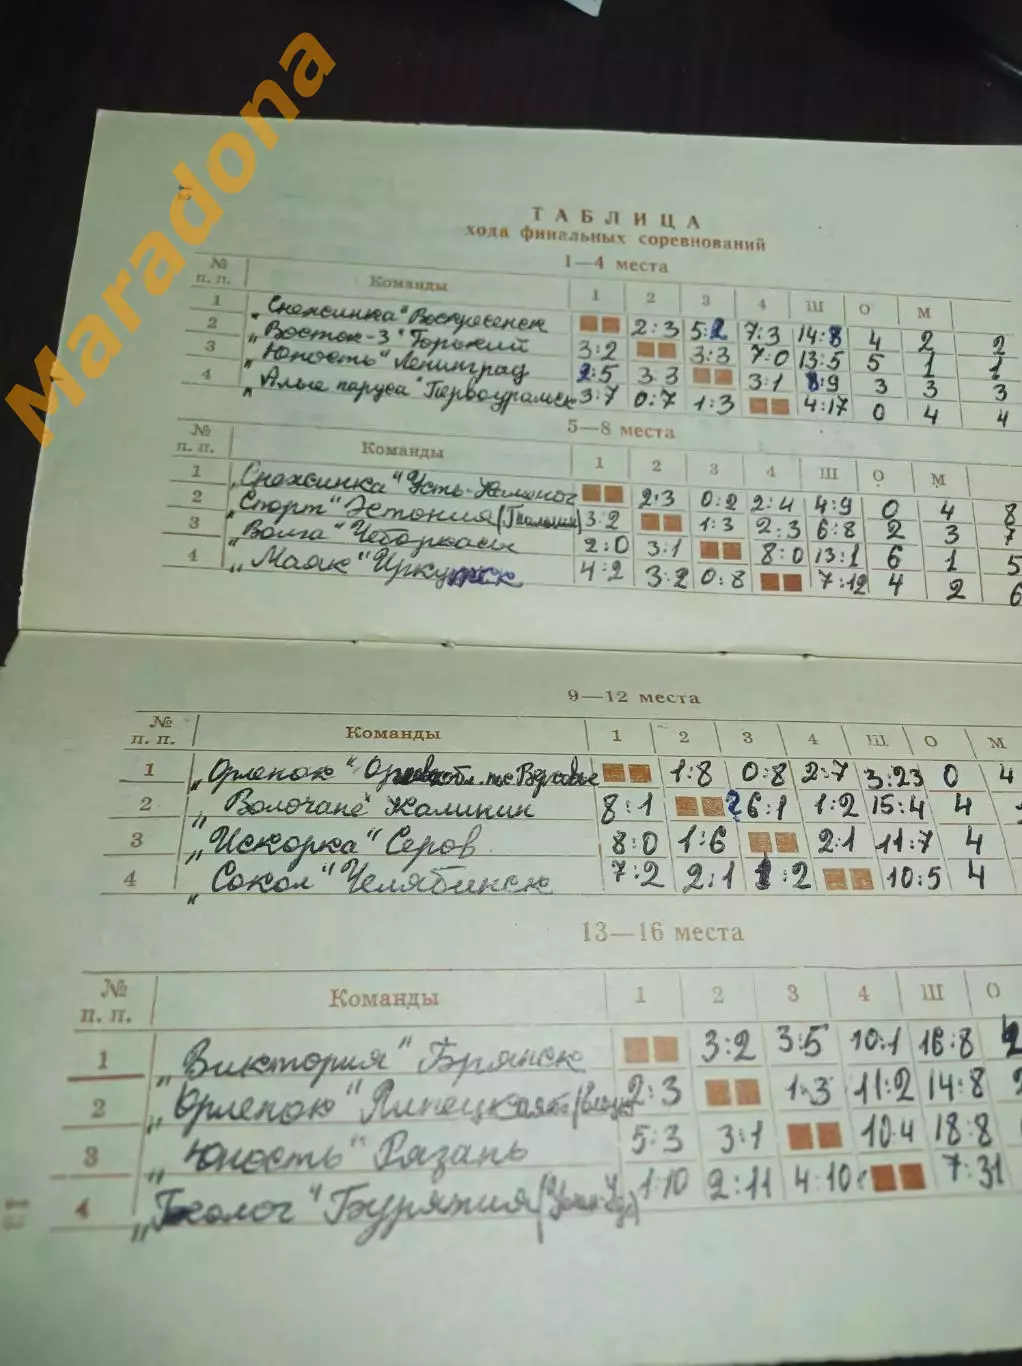 Maradona
ТАБЛИЦА
хода финальных соревнований
1—4 места
№ п. п. Команды 1 2 3 4 Ш О М
1 „Снежинка" Воскресенск 2:3 5:2 7:3 14:8 4 2 2
2 „Восток-3" Горький 3:2 3:3 7:0 13:5 5 1 1
3 „Юность" Ленинград 2:5 3:3 3:1 8:9 3 3 3
4 „Алые паруса" Первоуральск 3:7 0:7 1:3 4:17 0 4 4
5—8 места
№ п. п. Команды 1 2 3 4 Ш О М
1 „Снежинка" Усть-Каменог 2:3 0:2 2:4 4:9 0 4 8
2 „Спорт" Эстония 3:2 1:3 2:3 6:8 2 3 7
3 „Волга" Чебоксары 2:0 3:1 8:0 13:1 6 1 5
4 „Маяк" Иркутск 4:2 3:2 0:8 7:12 4 2 6
9—12 места
№ п. п. Команды 1 2 3 4 Ш О М
1 „Орленок" 1:8 0:8 2:7 3:23 0 4
2 „Волочане" Калинин 8:1 6:1 1:2 15:4 4
3 „Искорка" Серов 8:0 1:6 2:1 11:7 4
4 „Сокол" Челябинск 7:2 2:1 1:2 10:5 4
13—16 места
№ п. п. Команды 1 2 3 4 Ш О
1 „Виктория" Брянск 3:2 3:5 10:1 16:8
2 „Орленок" 2:3 1:3 11:2 14:8 2
3 „Юность" Рязань 5:3 3:1 10:4 18:8
4 „Геолог" Бурятия (Улан-Удэ) 1:10 2:11 4:10 7:31